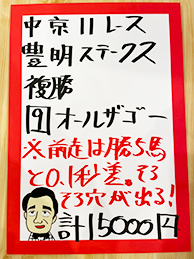 中京11レース
豊明ステークス
複勝
9 オールザゴー
※前走は勝ち馬
と0.1秒差。でる
でる穴が出る!
計15000円